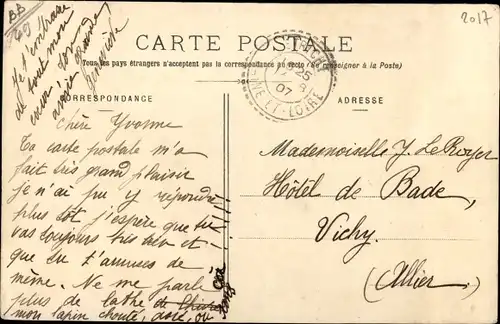 BB
60
2017
Je t'embrasse
de tout mon
cœur. Ton
amie
Geneviève
CARTE POSTALE
Tous les pays étrangers n'acceptent pas la correspondance au recto (Se renseigner à la Poste)
CORRESPONDANCE
ADRESSE
07
ET-LOIRE
Chère Yvonne
Ta carte postale m'a
fait très grand plaisir
je n'ai pu y répondre
plus tôt j'espère que tu
vas toujours très bien et
que tu t'amuses de
même. Ne me parle
plus de
mon lapin chouté, doré, ou
Mademoiselle Y. Le Royer
Hôtel de Bade,
Vichy.
(Allier)